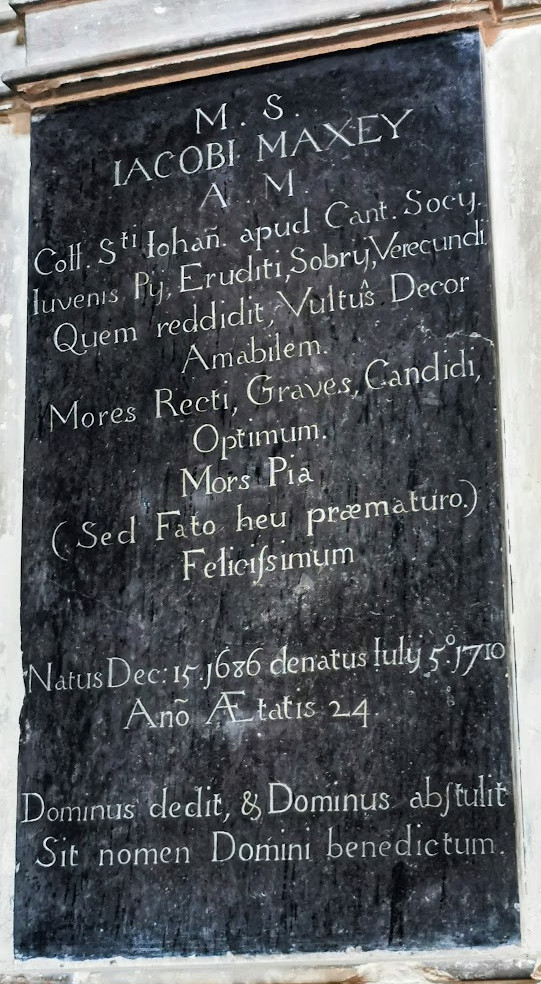 M. S.
IACOBI MAXEY
A. M.
Coll. Sti Iohañ. apud Cant. Socy.
Iuvenis Pÿ, Eruditi, Sobrÿ, Verecundi
Quem reddidit, Vultûs Decor
Amabilem.
Mores Recti, Graves, Candidi,
Optimum.
Mors Pia
(Sed Fato heu præmaturo.)
Feliciſsimum
Natus Dec: 15. 1686 denatus Iulÿ 5º. 1710
Anõ Ætatis 24.
Dominus dedit, & Dominus abſtulit
Sit nomen Domini benedictum.